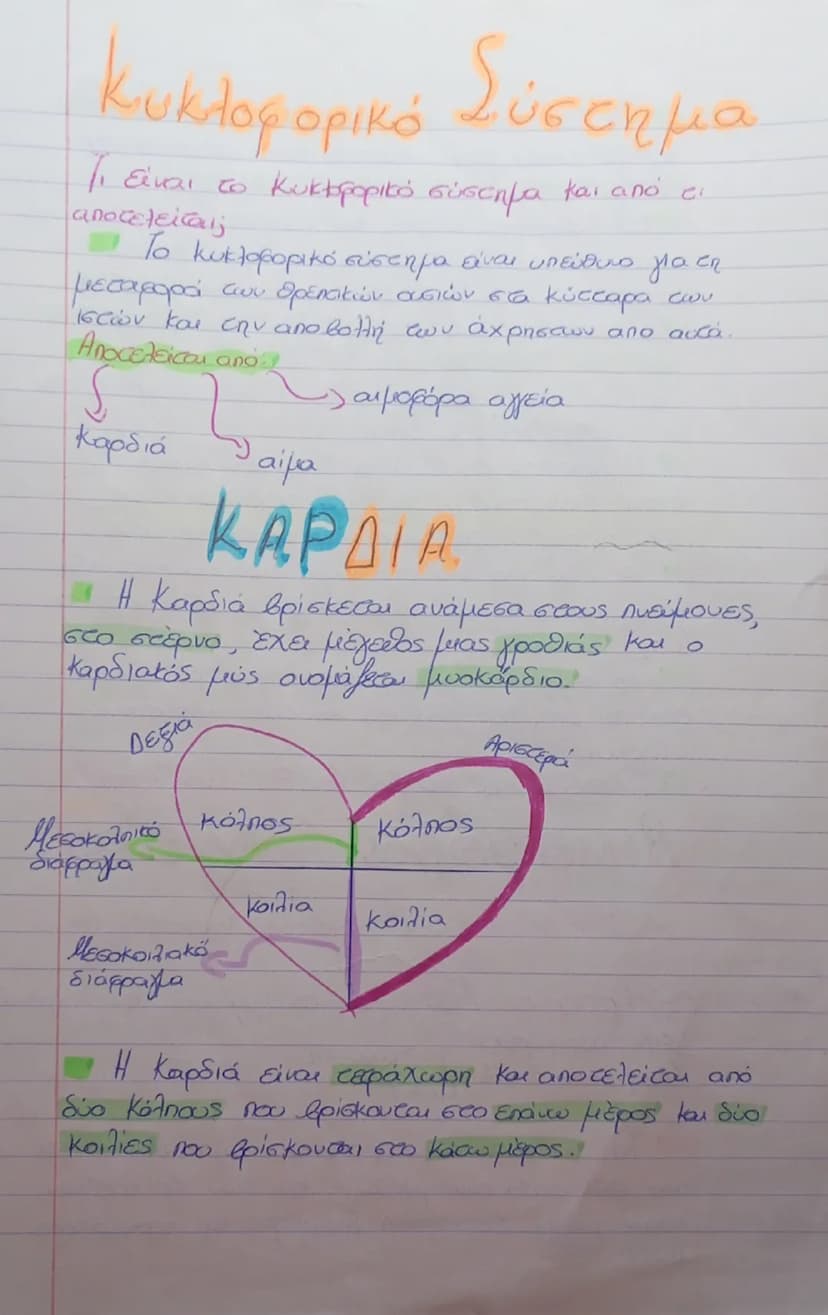 Κυκλοφορικό Σύστημα
Τι είναι το κυκλοφορικό σύστημα και από τι
αποτελείται;
Το κυκλοφορικό σύστημα είναι υπεύθυνο για τη
μεταφορά των θρεπτικών ουσιών στα κύτταρα των
ιστών και την αποβολή των άχρηστων απο αυτά.
Αποτελείται από:
αιμοφόρα αγγεία
Καρδιά
αίμα
ΚΑΡΔΙΑ
Η Καρδιά βρίσκεται ανάμεσα στους πνεύμονες,
στο στέρνο, έχει μέγεθος μιας γροθιάς και ο
καρδιακός μύς ονομάζεται μυοκάρδιο.
Δεξιά
Αριστερά
Κόλπος Κόλπος
Μεσοκολπικό
διάφραγμα
Κοιλία
Κοιλία
Μεσοκοιλιακό
διάφραγμα
Η Καρδιά είναι τετράχωρη και αποτελείται από
δύο Κόλπους που βρίσκονται στο επάνω μέρος και δύο
Κοιλίες που βρίσκονται στο κάτω μέρος.